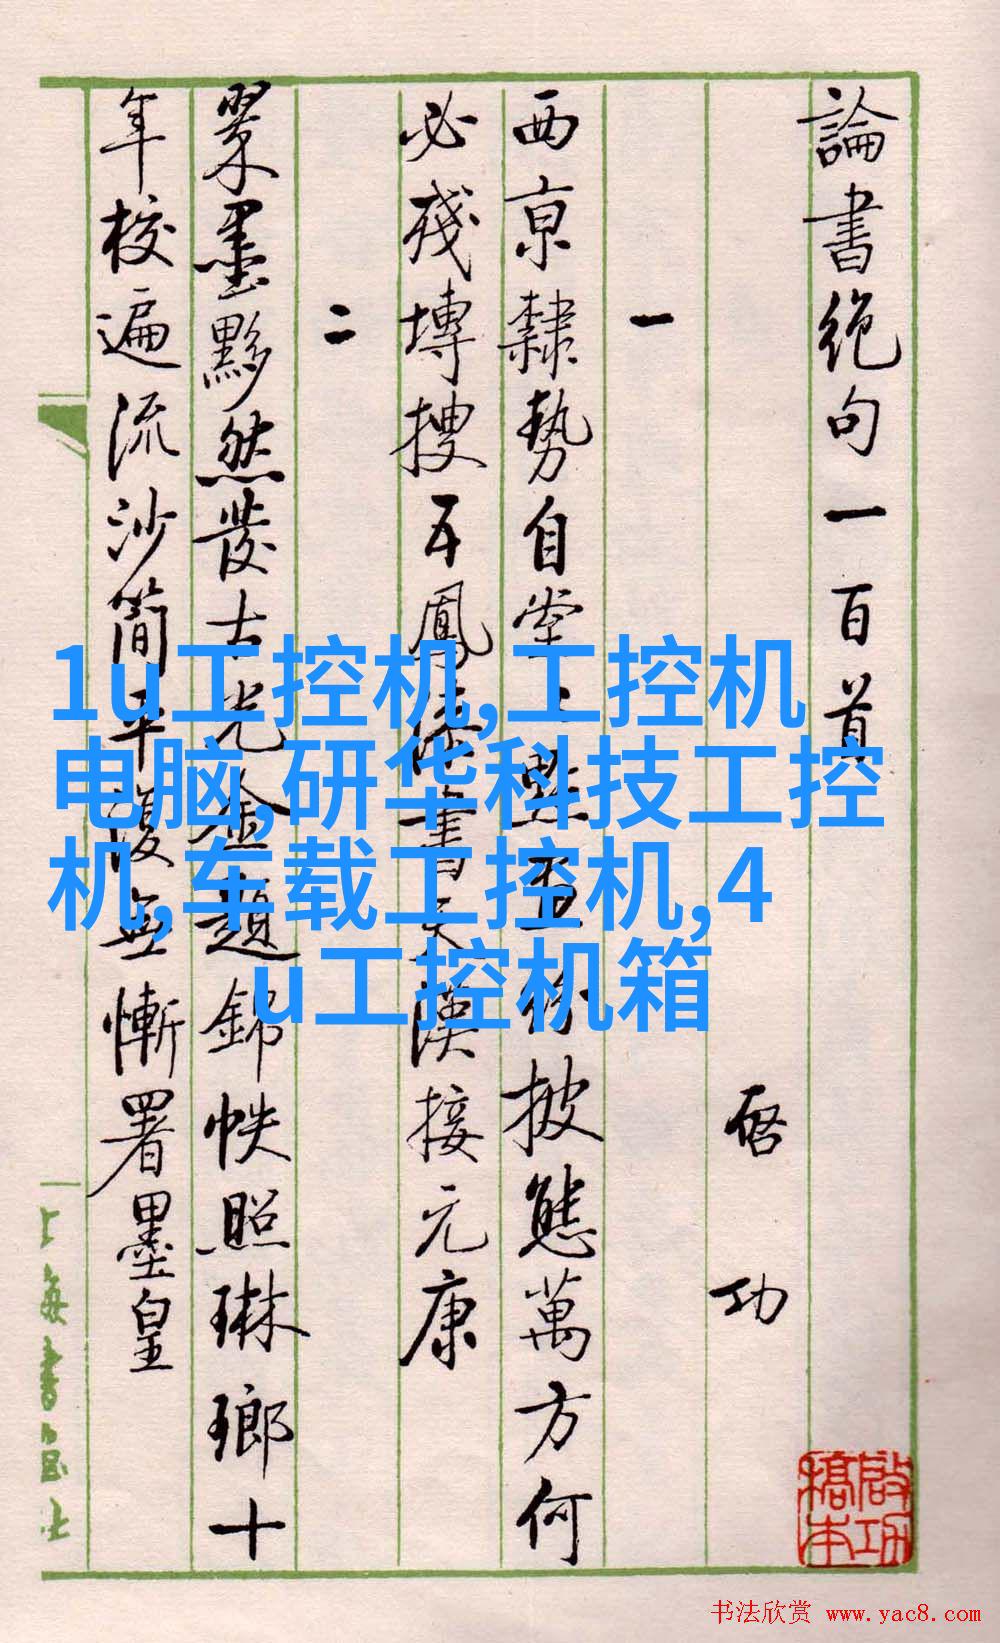 論書絕句一百首
啓功
一
西京隸勢自堂〻點畫紛披態萬方何
必殘塼搜五鳳漆書天漢接元康
二
翠墨黟然發古光金題錦帙照琳瑯十
年校遍流沙簡平復無慚署墨皇
上海書画社
啟功稿本
1u工控机,工控机
电脑,研华科技工控
机,车载工控机,4
u工控机箱
书法欣赏 www.yac8.com